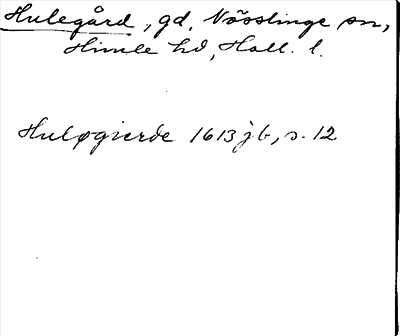 Hulegård, gd, Nösslinge sn,
Himle hd, Hall. l.
Huløgierde 1613 jb, s. 12